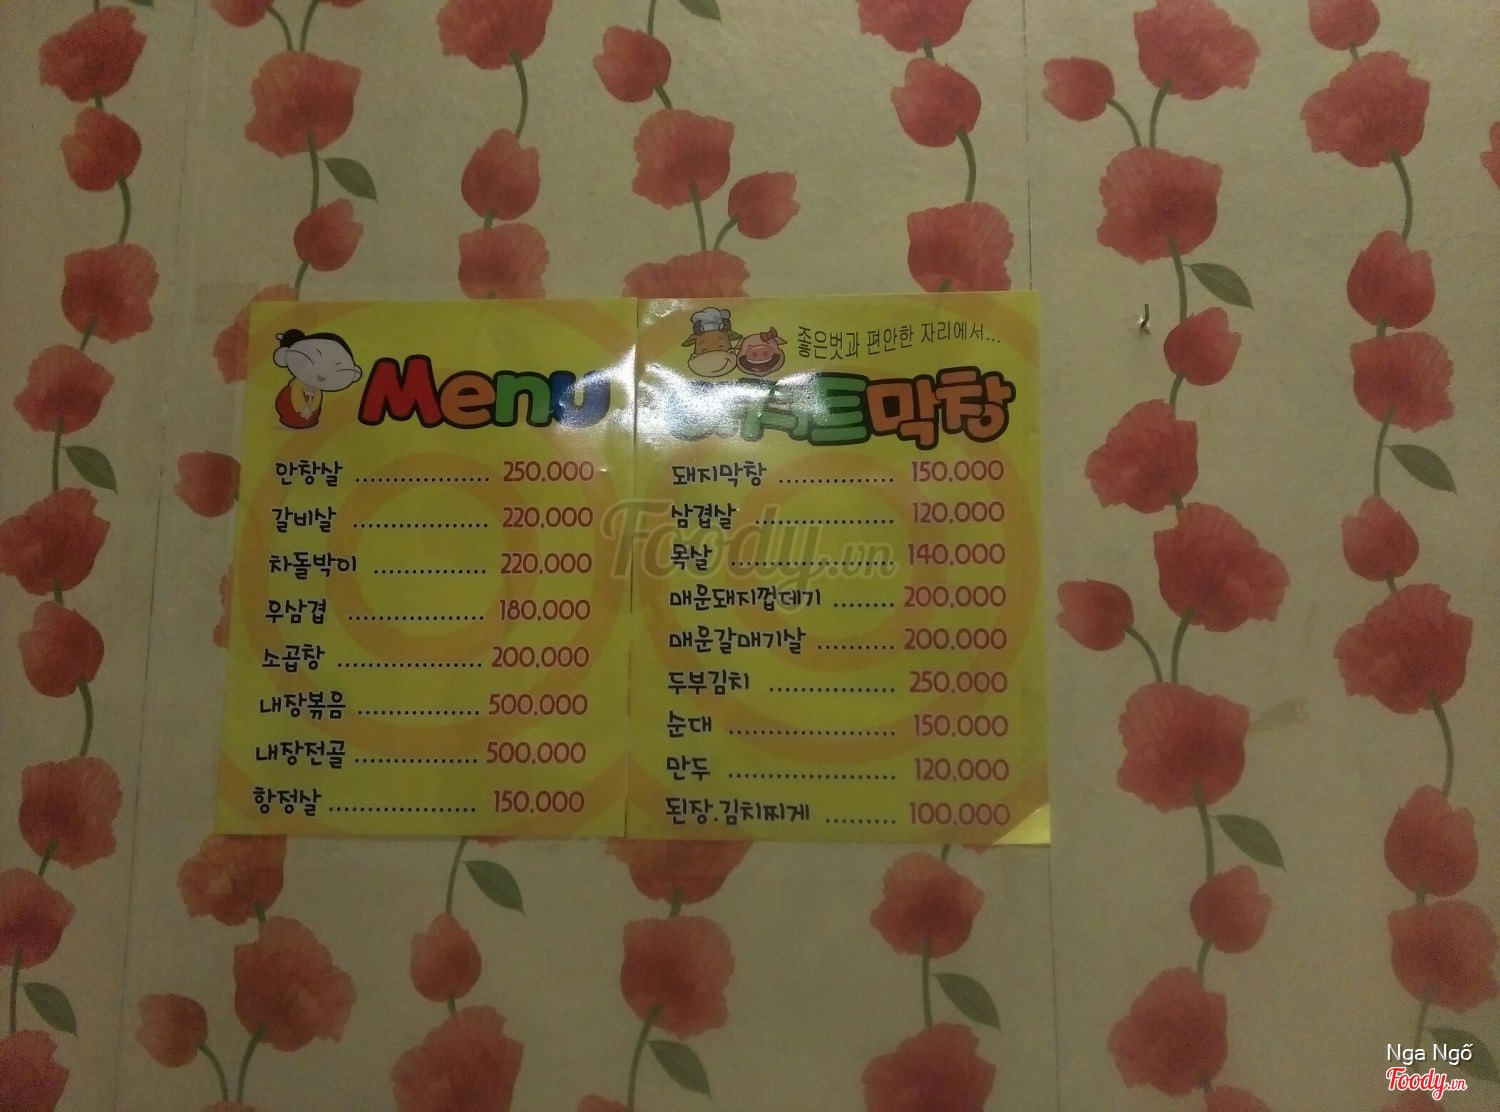 Menu
안창살 .................. 250,000
갈비살 .................. 220,000
차돌박이 ............... 220,000
우삼겹 .................. 180,000
소곱창 .................. 200,000
내장볶음 ............... 500,000
내장전골 ............... 500,000
항정살 .................. 150,000
좋은벗과 편안한 자리에서...
막창
돼지막창 ............... 150,000
삼겹살 .................. 120,000
목살 ..................... 140,000
매운돼지껍데기 ........ 200,000
매운갈매기살 .......... 200,000
두부김치 ................ 250,000
순대 ..................... 150,000
만두 ..................... 120,000
된장.김치찌게 ......... 100,000
Foody.vn
Nga Ngố
Foody.vn